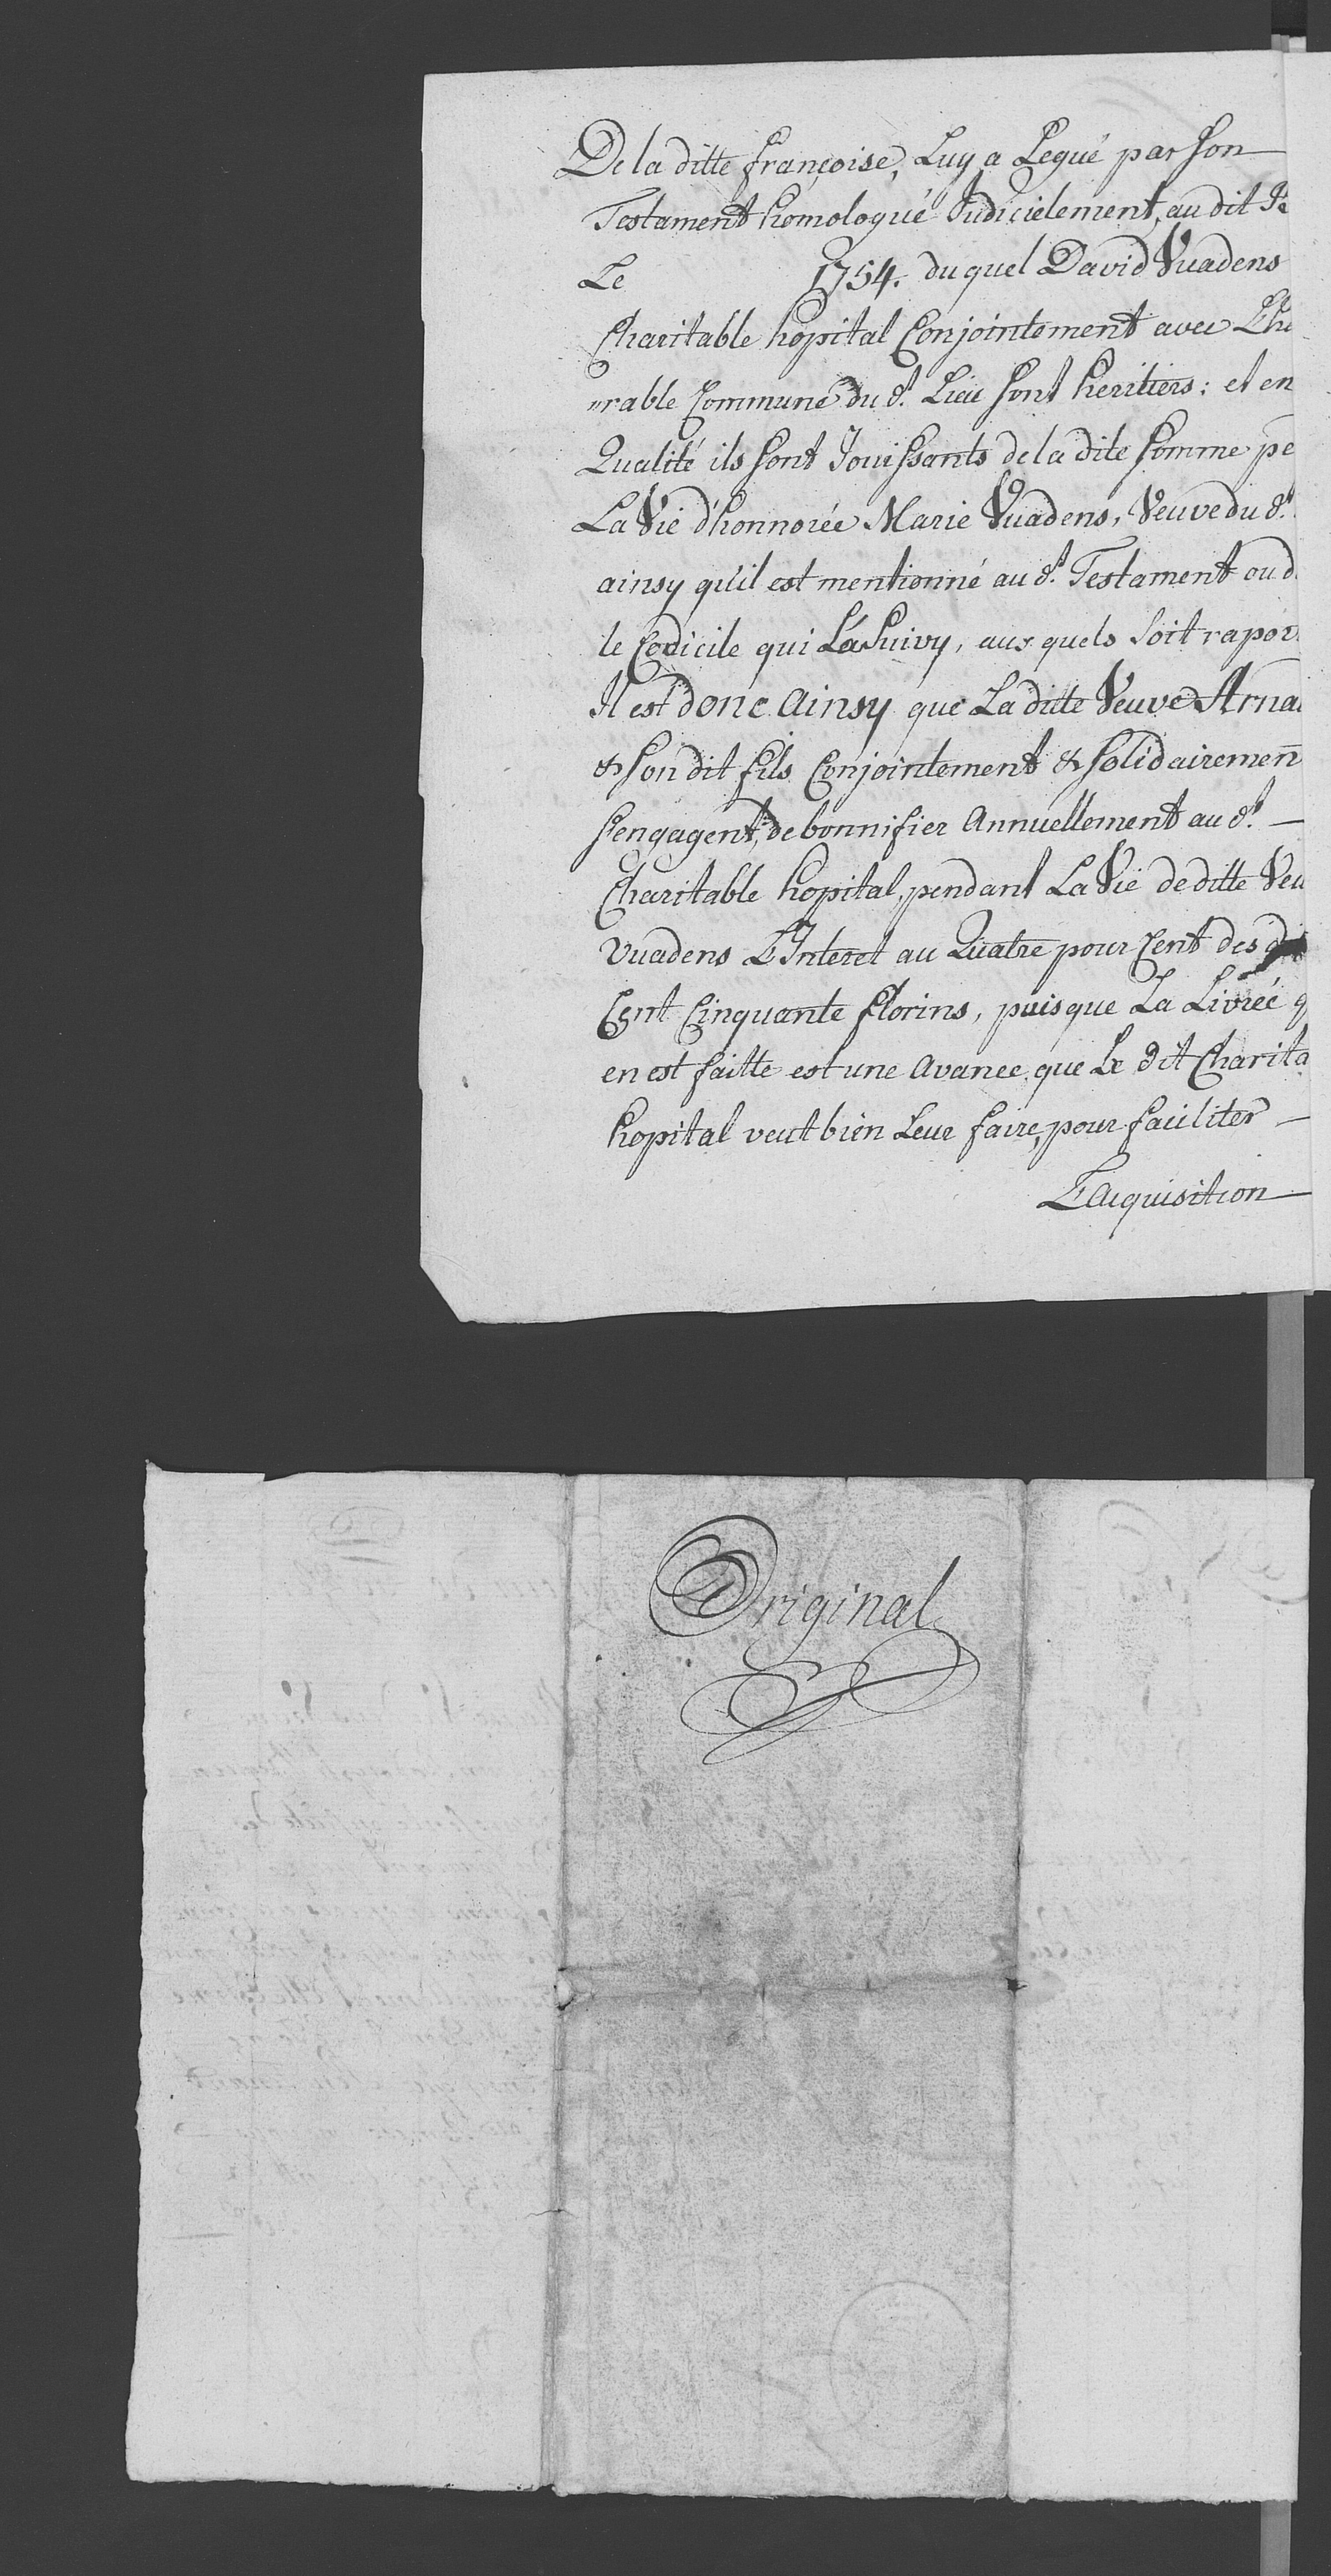 De la ditte françoise, Luy a Legué par son
Testament homologué Judicielement, au dit
Le 1754. du quel David Vuadens
Charitable hopital Conjointement avec Lh
"rable Commune du d.t Lieu sont heritiers: et en
Qualité ils sont Jouissants de la dite somme pe
La Vie d'honnorée Marie Vuadens, Veuve du d.t
ainsy qu'il est mentionné au d.t Testament ou d
le Codicile qui La Suivy, aux quels soit rapor
Il est donc ainsy que La ditte Veuve Arna
& son dit fils Conjointement & solidairemen
s'engagent, de bonnifier Annuellement au d.t —
Charitable hopital, pendant La Vie de ditte Veu
Vuadens L'Interet au Quatre pour Cent des
Cent Cinquante florins, puisque La Livreé q
en est faitte est une avance que Le dit Charita
hopital veut bien Leur faire, pour faciliter —
L'acquisition —
Original